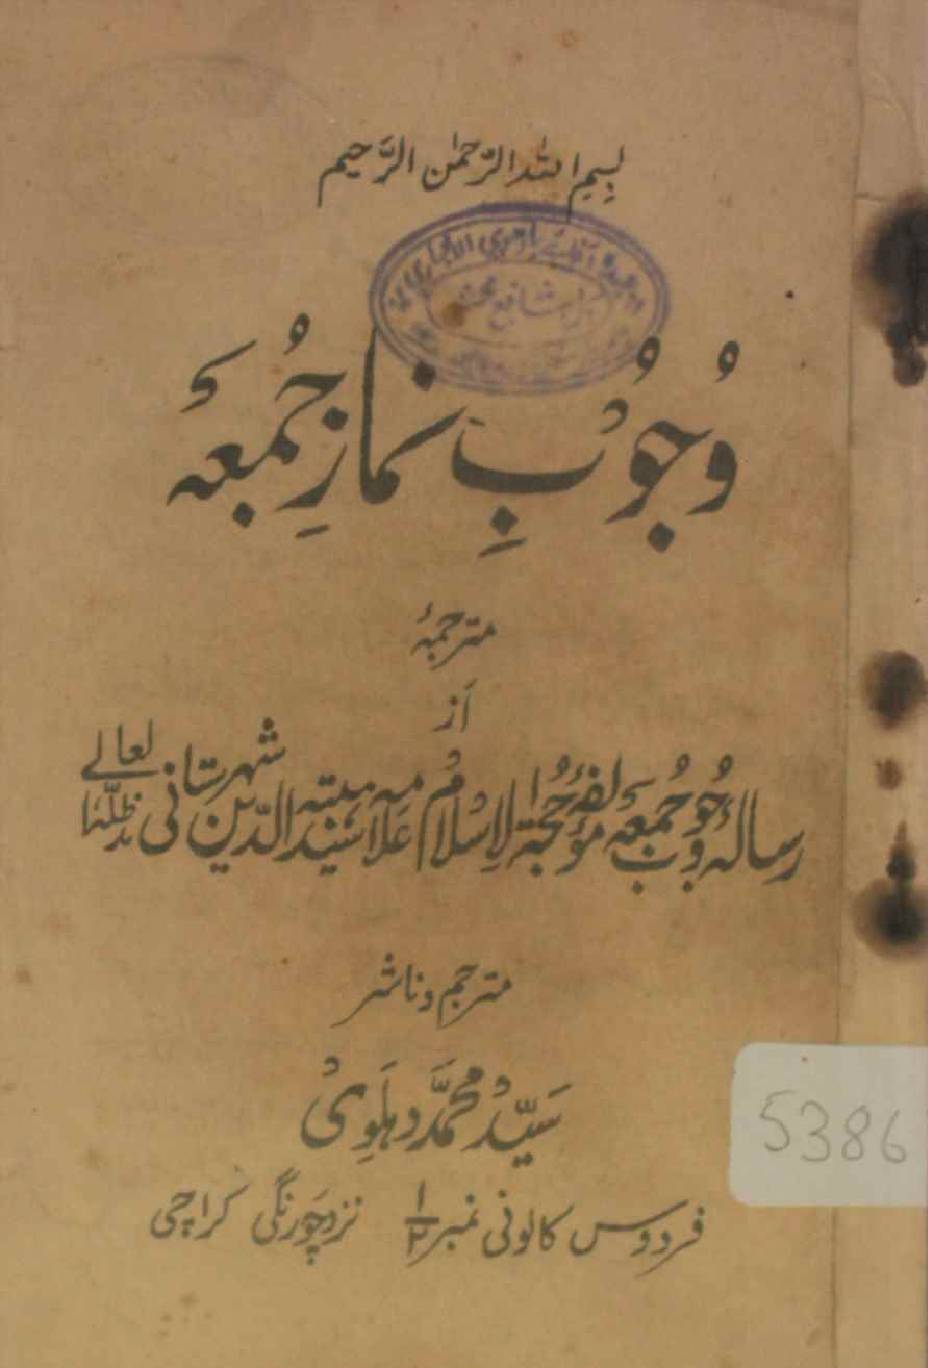 بِسْمِ اللہ الرّحمٰن الرَّحیم
وُجُوْبِ نمازِ جُمعَہ
مترجمۂ
اَز
رسالہ وجُوب جُمعَہ مؤلفہ حُجّۃ الاسْلام عَلامہ سَیّد ہبتہ الدّین شہرستانی مدظلّہٗ لعالے
مترجم و ناشر
سَیّد محمَّد دہلَوِی
فردوس کالونی نمبر ۱/۲ نزد چَورنگی کراچی
5386